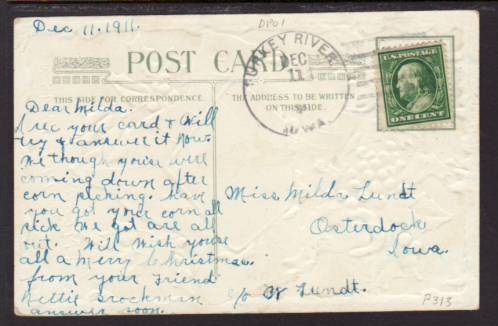 Dec 11. 1911.
DPO1
POST CARD
THIS SIDE FOR CORRESPONDENCE
THE ADDRESS TO BE WRITTEN
ON THIS SIDE.
TURKEY RIVER
DEC
11
IOWA.
U.S. POSTAGE
ONE CENT
Dear Milda.
I rec your card & Will
try & answer it Now.
We though youse were
coming down after
corn picking. have
you got your corn all
pick We got are all
out. Will Wish youse
all a Merry Christmas.
from your Friend
Nettie Brockman
answer soon.
Miss. Milda Lundt
Osterdock
Iowa.
c/o W Lundt.
P313